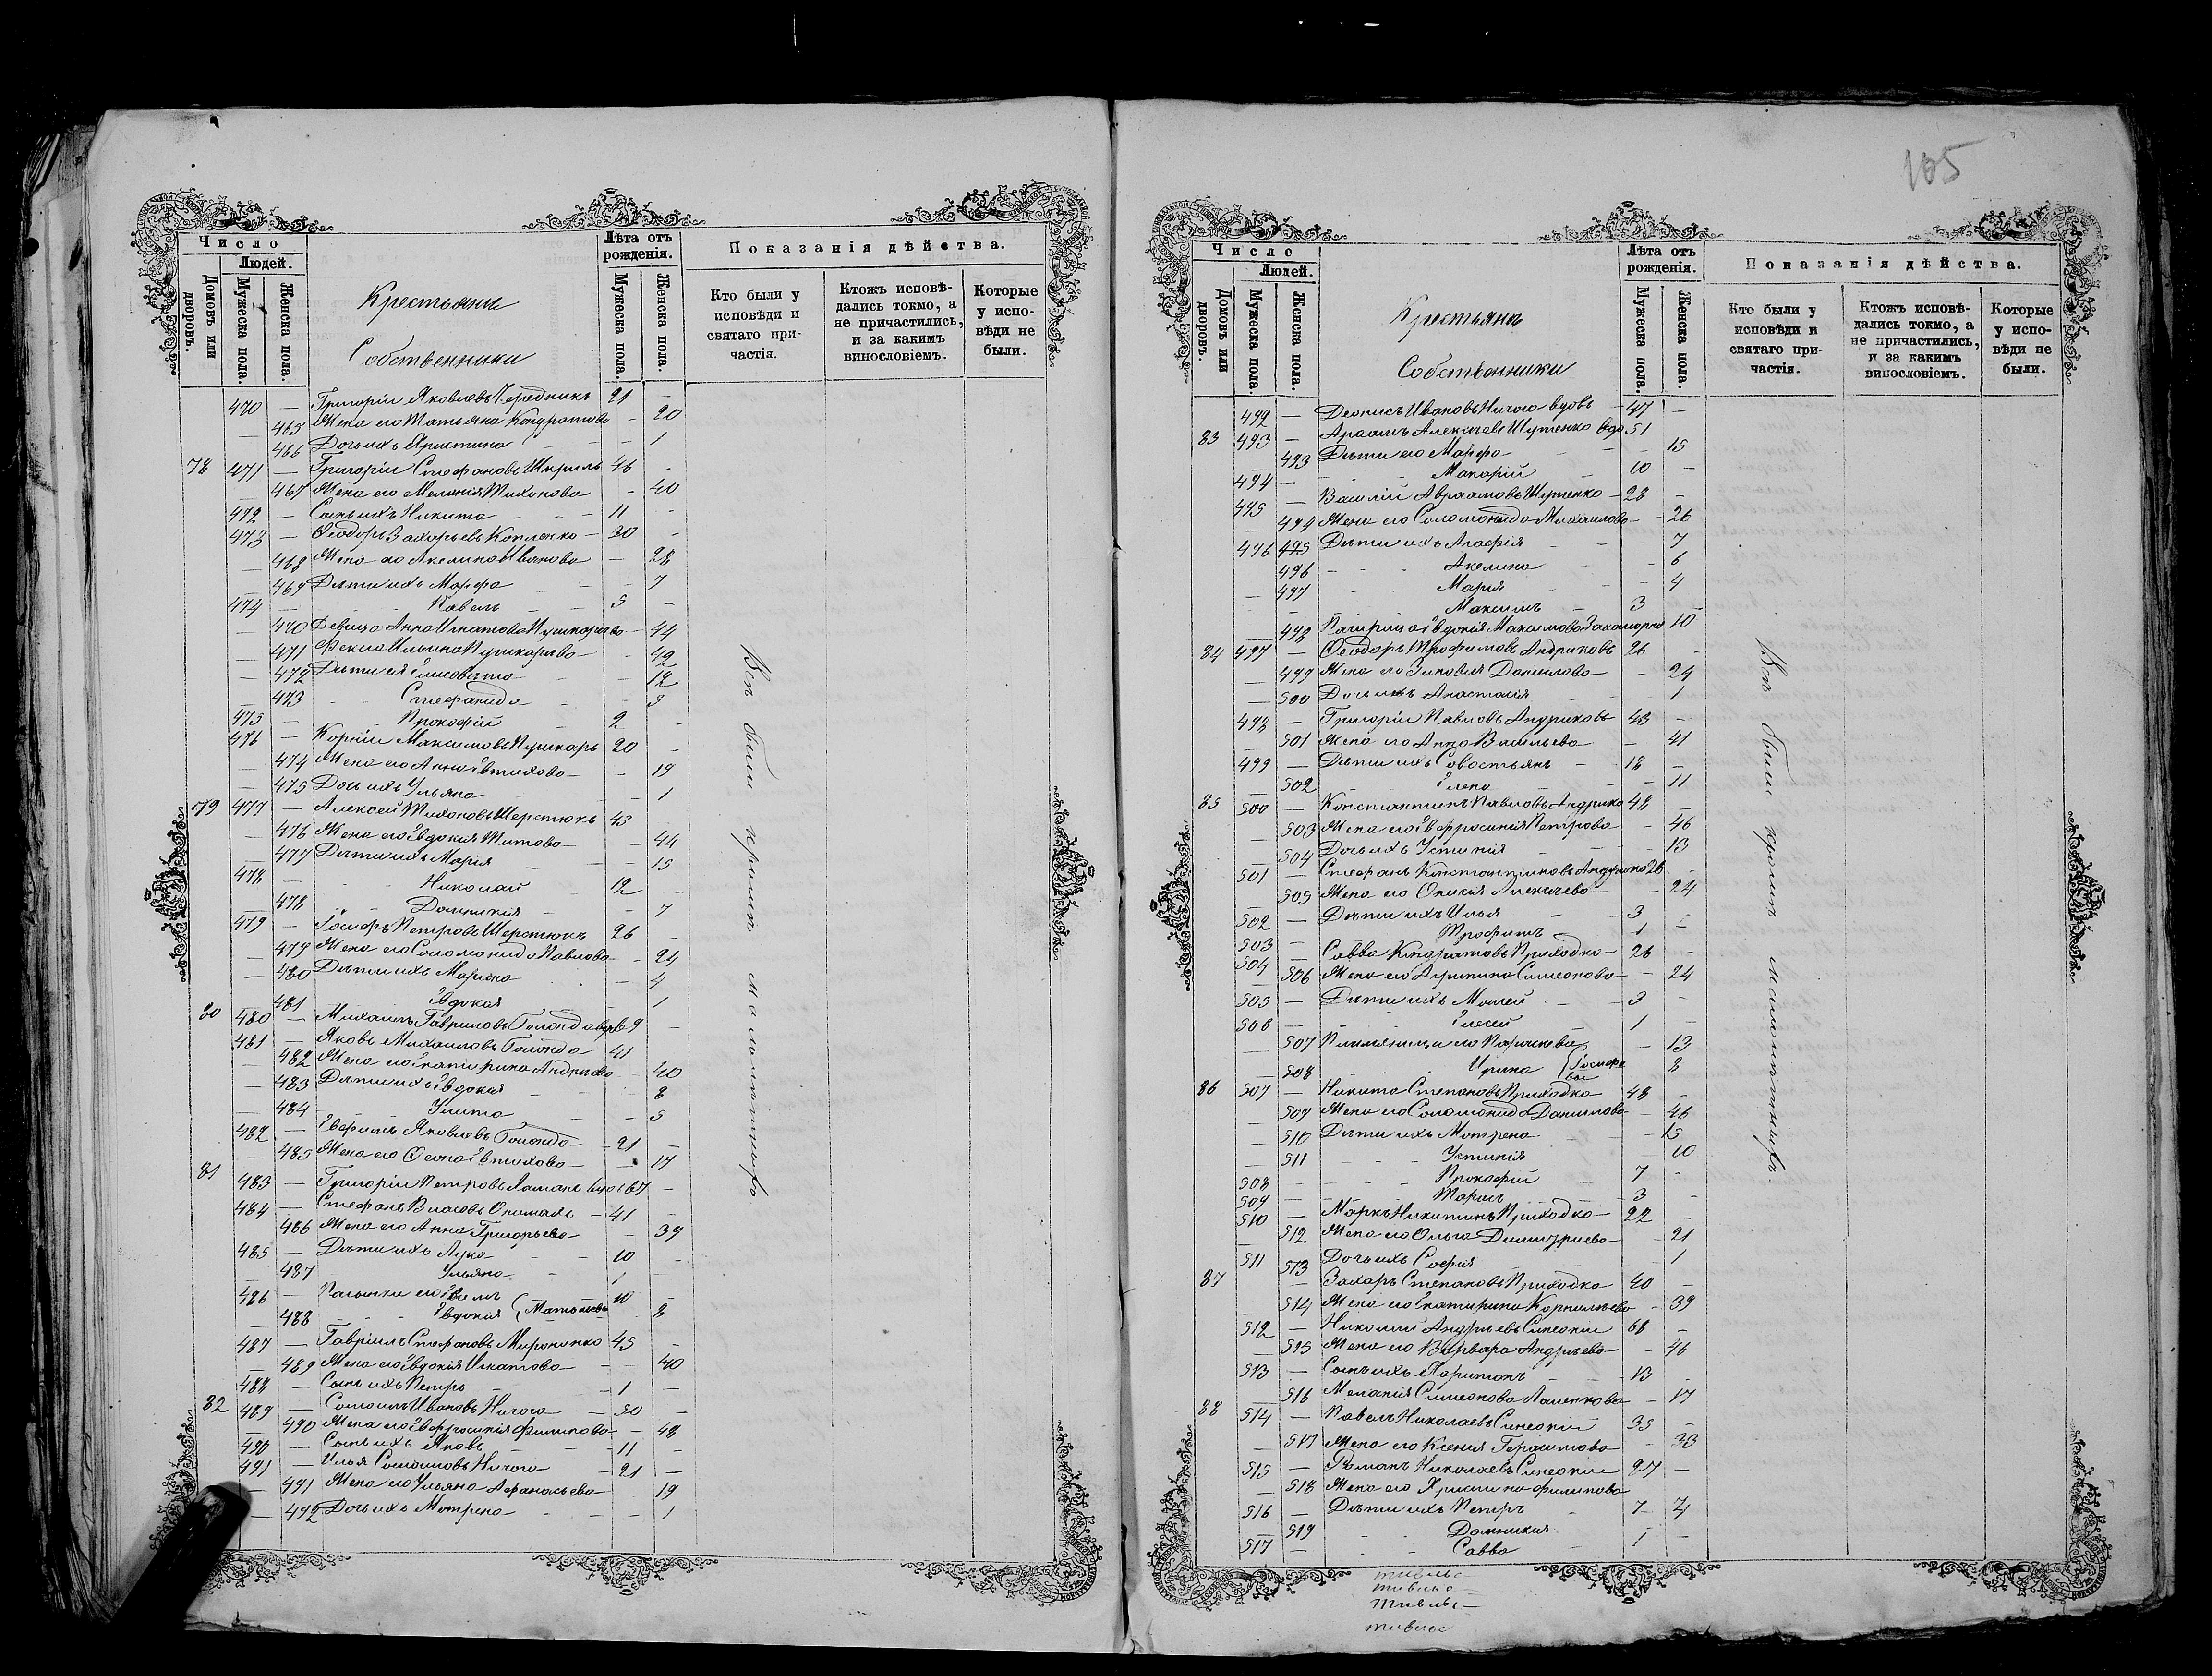 Число
Людей.
Домовъ или дворовъ.
Мужеска пола.
Женска пола.
Крестьяни
Собственники
Лѣта отъ рожденія.
Мужеска пола.
Женска пола.
Показанія дѣйства.
Кто были у исповѣди и святаго причастія.
Ктожъ исповѣдались токмо, а не причастились, и за какимъ винословіемъ.
Которые у исповѣди не были.
470 — Григорій Яковлевъ Чередникъ 21 -
— 465 Жена его Татьяна Кондратова - 20
466 Дочь ихъ Христина - - 1
78 471 — Григорій Стефановъ Шкриль 46 -
— 467 Жена его Меланія Тихонова - 40
472 — Сынъ ихъ Никита - - - 11 -
473 — Ѳеодоръ Захарьевъ - 30 -
— 468 Жена его Акелина Иванова - 28
— 469 Дѣти ихъ Марфа - - 7
474 — Павелъ - - 5 -
— 470 Девица Анна Игнатова Пушкарева - 44
471 Фекла Ильина Пушкарева - 42
472 Дѣти ея Елисавета - - 12
— 473 - - Стефанида - - 5
475 — Прокофій 2 -
476 — Корній Максимовъ Пушкарь 20 -
— 474 Жена его Анна Евтихова - - 19
— 475 Дочь ихъ Ульяна - 1
79 477 — Алексей Тихоновъ Шерстюкъ 45
— 476 Жена его Евдокія Титова - - 44
— 477 Дѣти ихъ Марія - - 15
478 — - - Николай - 12 -
— 478 - - Домникія - - 7
479 — Іосифъ Петровъ Шерстюкъ 26 -
— 479 Жена его Соломонида Павлова - - 24
— 480 Дѣти ихъ Марина - 4
— 481 Евдокія 1
80 480 — Михаилъ Гавриловъ Голондо
481 — Яковъ Михаиловъ Голондо - 41
— 482 Жена его Екатирина Андреева - 40
— 483 Дѣти ихъ Евдокія - - - 8
— 484 - Улита - - 5
482 — Евфимъ Яковлевъ Голондо - 21 -
— 485 Жена его Ѳекла Евтихова - - 17
81 483 — Григорій Петровъ 67 -
484 — Стефанъ Власовъ - 41 -
— 486 Жена его Анна Григорьева - - 39
485 — Дѣти ихъ Лука - - 10 -
— 487 Ульяна - - 1
486 — 10 -
— 488 Евдокія - 8
487 — Гавріилъ Стефановъ Мироненко 45 -
— 489 Жена его Евдокія Игнатова - - 40
488 — Сынъ ихъ Петръ - - 1 -
82 489 — Самоилъ Ивановъ Ничого - 50 -
— 490 Жена его Евфросинія Филипова - - 48
490 — Сынъ ихъ Яковъ - - 11 -
491 — Илья Самоиловъ Ничого - 21 -
— 491 Жена его Ульяна Афанасьева - 19
— 492 Дочь ихъ Мотрена - - - - 1
Всѣ были кромѣ малолѣтковъ
105
Число
Людей.
Домовъ или дворовъ.
Мужеска пола
Женска пола.
Крестьянъ
Собственники
Лѣта отъ рожденія.
Мужеска пола.
Женска пола.
Показанія дѣйства.
Кто были у исповѣди и святаго причастія.
Ктожъ исповѣдались токмо, а не причастились, и за какимъ винословіемъ.
Которые у исповѣди не были.
492 — Деонисъ Ивановъ Ничого вдовъ - 47 -
83 493 — Шутенко вдо 51
— 493 Дѣти его Марфа - - - 15
494 — - - Макарій - 10 -
495 — Василій Авраамовъ Шутенко - 28 -
— 494 Жена его Соломонида Михаилова - - 26
496 495 Дѣти ихъ Агафія - - - 7
496 - - Акелина - - 6
— 497 Марія - - 4
— Максимъ - 3 -
— 498 Евдокія Максимова 10
84 497 — Ѳеодоръ Трофимовъ Андриковъ 26 -
— 499 Жена его Зиновія Данилова - - 24
— 500 Дочь ихъ Анастасія - - 1
498 — Григорій Павловъ Андриковъ 43 -
— 501 Жена его Анна Васильева - - 41
499 — Дѣти ихъ Савостьянъ - 18 -
— 502 Елена - - 11
85 500 — Константинъ Павловъ Андрико 48 -
— 503 Жена его Евфросинія Петрова - 46
— 504 Дочь ихъ Устинія - - - 13
501 — Стефанъ Константиновъ 26 -
— 505 Жена его Алексеева - - 24
502 — Дѣти ихъ Илья - - 3 -
503 — Трофимъ - 1 -
504 — Савва Кондратовъ Приходко - 26 -
— 506 Жена его Агрипина Симеонова - - 24
505 — Дѣти ихъ Моисей - - 3 -
506 — - - Елесей - 1 -
— 507 Племяници его Параскева - 13
— 508 Ирина 8
86 507 — Никита Степановъ Приходко - 48 -
— 509 Жена его Соломонида Данилова - 46
— 510 Дѣти ихъ Мотрена - - 15
— 511 - - - Устинія - 10
508 — - - - Прокофій - 7 -
509 — - - - Тарасъ - - 3 -
510 — Маркъ Никитинъ Приходко - 22 -
— 512 Жена его Ольга Димитріева - - 21
511 513 Дочь ихъ Софія - - - 1
87 — Захаръ Степановъ Приходко 40 -
— 514 Жена его Екатирина Корнильева - 39
512 — Николай Андреевъ 68 -
— 515 Жена его Варвара Андреева - - 46
513 — Сынъ ихъ Харитонъ - - 13 -
— 516 Меланія Симеонова - 17
88 514 — Павелъ Николаевъ 35 -
— 517 Жена его Ксенія Герасимова - - 33
515 — Романъ Николаевъ 27 -
— 518 Жена его Христина Филипова
516 — Дѣти ихъ Петръ - 7 7
— 519 - - Домникія
517 — - - Савва - 1 -
Всѣ были кромѣ